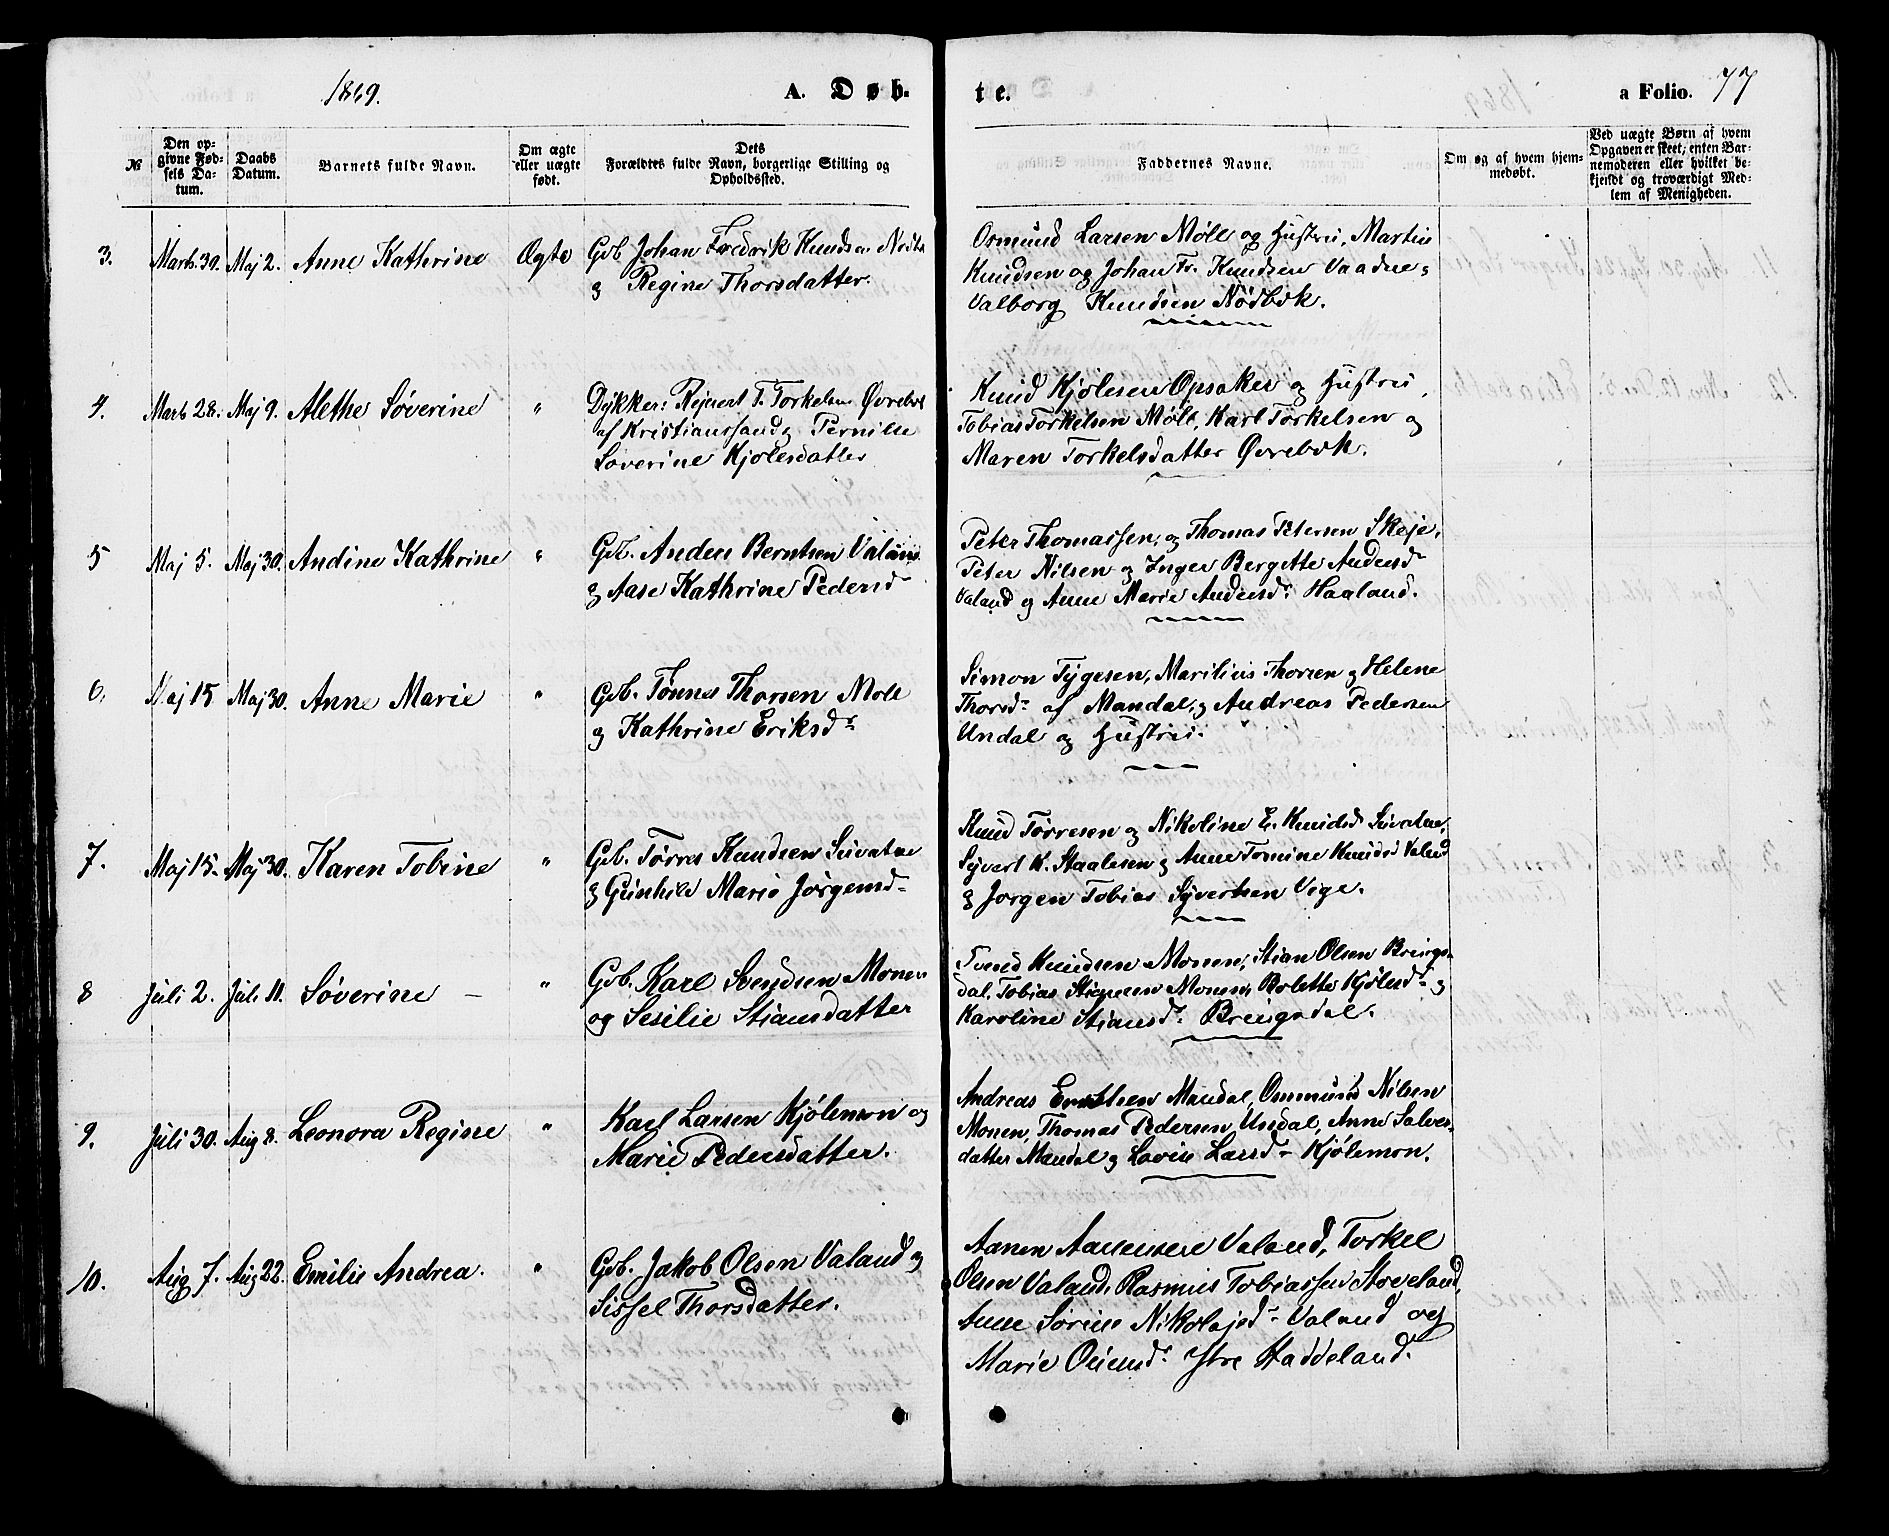 1869. A. Døb- te. a Folio. 77
№
Den op-
givne Fød-
sels Da-
tum.
Daabs
Datum.
Barnets fulde Navn.
Om ægte
eller uægte
født.
Dets
Forældres fulde Navn, borgerlige Stilling og
Opholdssted.
Faddernes Navne.
Om og af hvem hjem-
medøbt.
Ved uægte Børn af hvem
Opgaven er skeet, enten Bar-
nemoderen eller hvilket be-
kjendt og troværdigt Med-
lem af Menigheden.
3. Marts 30. Maj 2. Anne Kathrine Ægte
Gdb. Johan Fredrik Knudsen
og Regine Thorsdatter.
Osmund Larsen Møll og Hustru, Martin
Knudsen og Johan Fr. Knudsen Vaadne,
Valborg Knudsen Nødbek.
4. Marts 28. Maj 9. Alethe Søverine "
Dykker: Rejnert T. Torkelsen Øvrebøk
af Kristianssand og Pernille
Søverine Kjølesdatter
Knud Kjølesen Opsaker og Hustru,
Tobias Torkelsen Møll, Karl Torkelsen og
Maren Torkelsdatter Øvrebøk.
5 Maj 5. Maj 30. Andine Kathrine "
Gdb. Anders Berntsen Valand
og Aase Kathrine Pedersd
Peter Thomassen og Thomas Petersen Skeje,
Peter Nilsen og Inger Bergitte Andersdr
Valand og Anne Marie Andersdr Haaland.
6. Maj 15 Maj 30. Anne Marie "
Gdb. Tønnes Thorsen Møll
og Kathrine Eriksdr
Simon Tygesen, Marilius Thorsen og Helene
Thorsdr af Mandal, og Andreas Pedersen
Undal og Hustru.
7. Maj 15. Maj 30. Karen Tobine "
Gdb. Tørres Knudsen Suvatne
og Gunhild Marie Jørgensd
Knud Tørresen og Nikoline E. Knudsd Suvatne,
Syvert K. Staalesen og Anne Tomine Knudsd Valand
og Jørgen Tobias Syvertsen Vige.
8 Juli 2. Juli 11. Søverine – "
Gdb. Karl Svendsen Monen
og Sesilie Stiansdatter
Svend Knudsen Monen, Stian Olsen Brings-
dal, Tobias Monen, Bolette Kjølesdr og
Karoline Stiansdr Bringsdal.
9. Juli 30. Aug 8. Leonora Regine "
Karl Larsen Kjølemon og
Marie Pedersdatter.
Andreas Mandal, Osmund Nilsen
Monen, Thomas Pedersen Undal, Anne Salves-
datter Mandal og Lovise Larsdr Kjølemon.
10. Aug 7. Aug 22. Emilie Andrea. "
Gdb. Jakob Olsen Valand og
Sissel Thorsdatter.
Aanen Aanensen Valand, Torkel
Olsen Valand, Rasmus Tobiassen Stoveland,
Anne Sørine Nikolajsdr Valand og
Marie Ytre Haddeland.